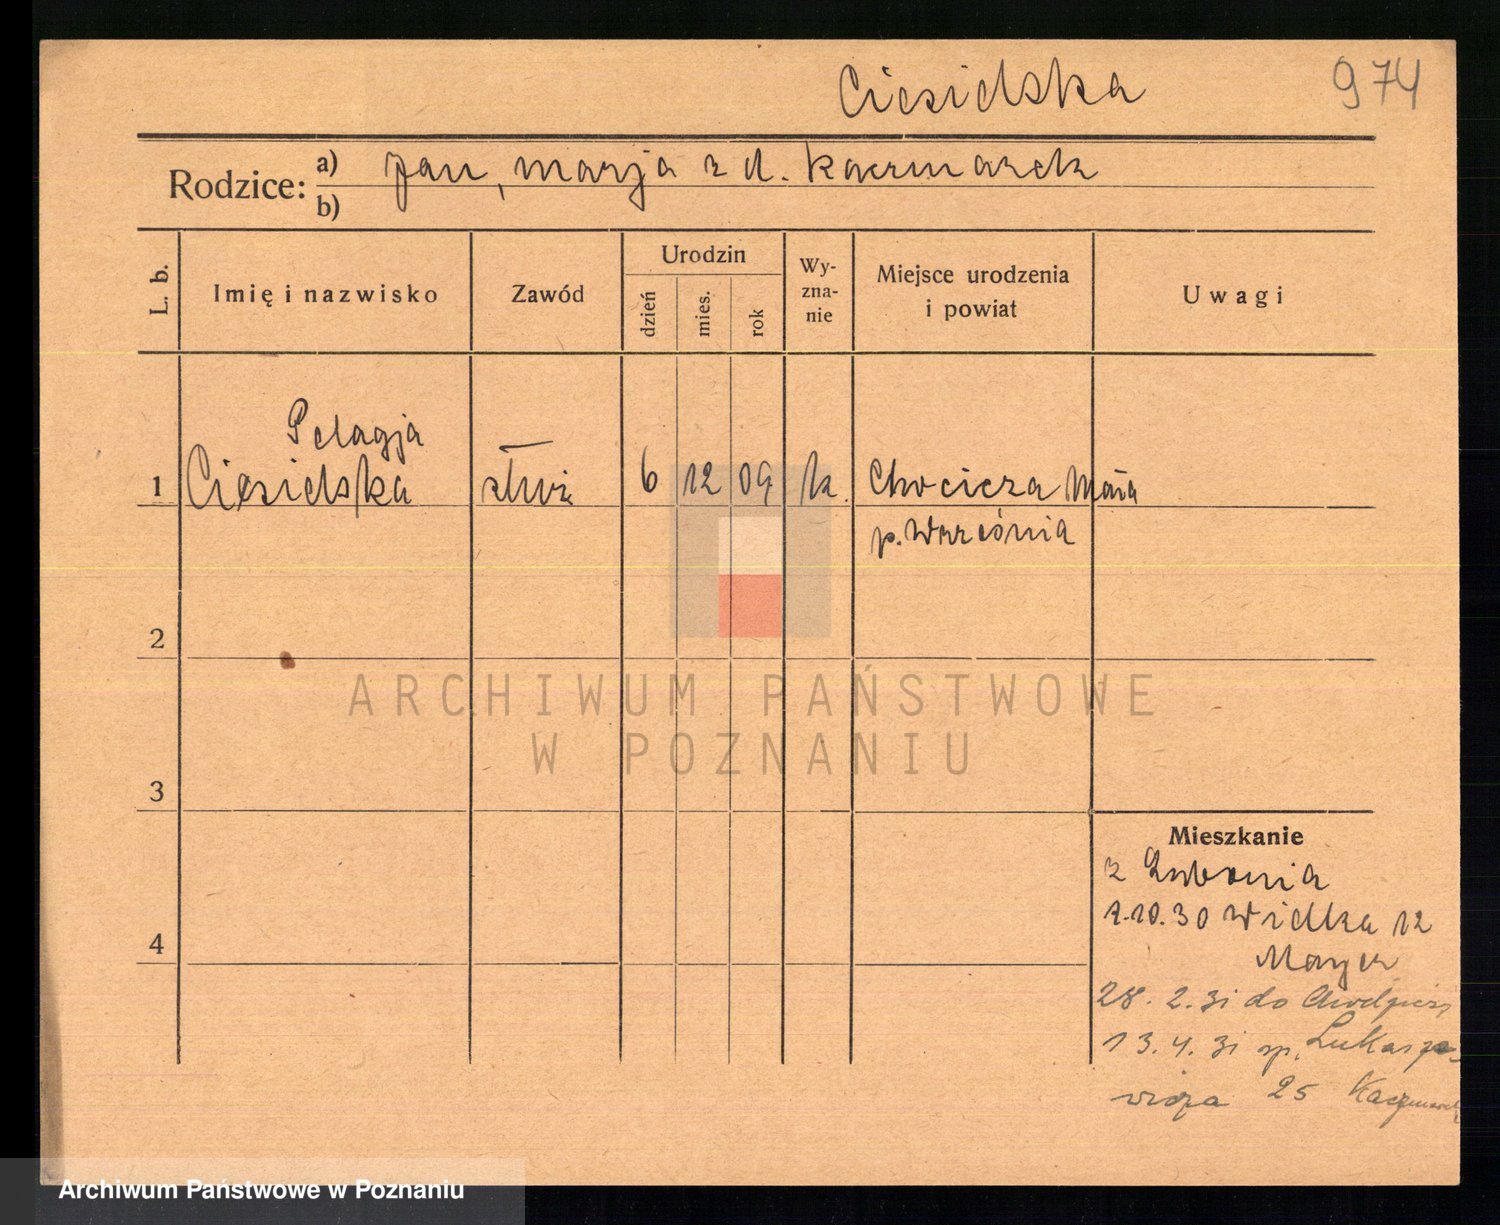 Ciesielska 974
Rodzice: a) Jan, Marja z d. Kaczmarek
b)
L. b. Imię i nazwisko Zawód Urodzin dzień mies. rok Wy-zna-nie Miejsce urodzenia i powiat Uwagi
Pelagja
1 Ciesielska służ 6 12 09 k. Chocicza Mała
p. Września
2
ARCHIWUM PAŃSTWOWE
W POZNANIU
3
Mieszkanie
z Lubonia
1.10.30 Wielka 12
4
Mayer
28. 2. 31 do
13. 4. 31 sp. Łukasze-
wicza 25 Kaczmarek
Archiwum Państwowe w Poznaniu